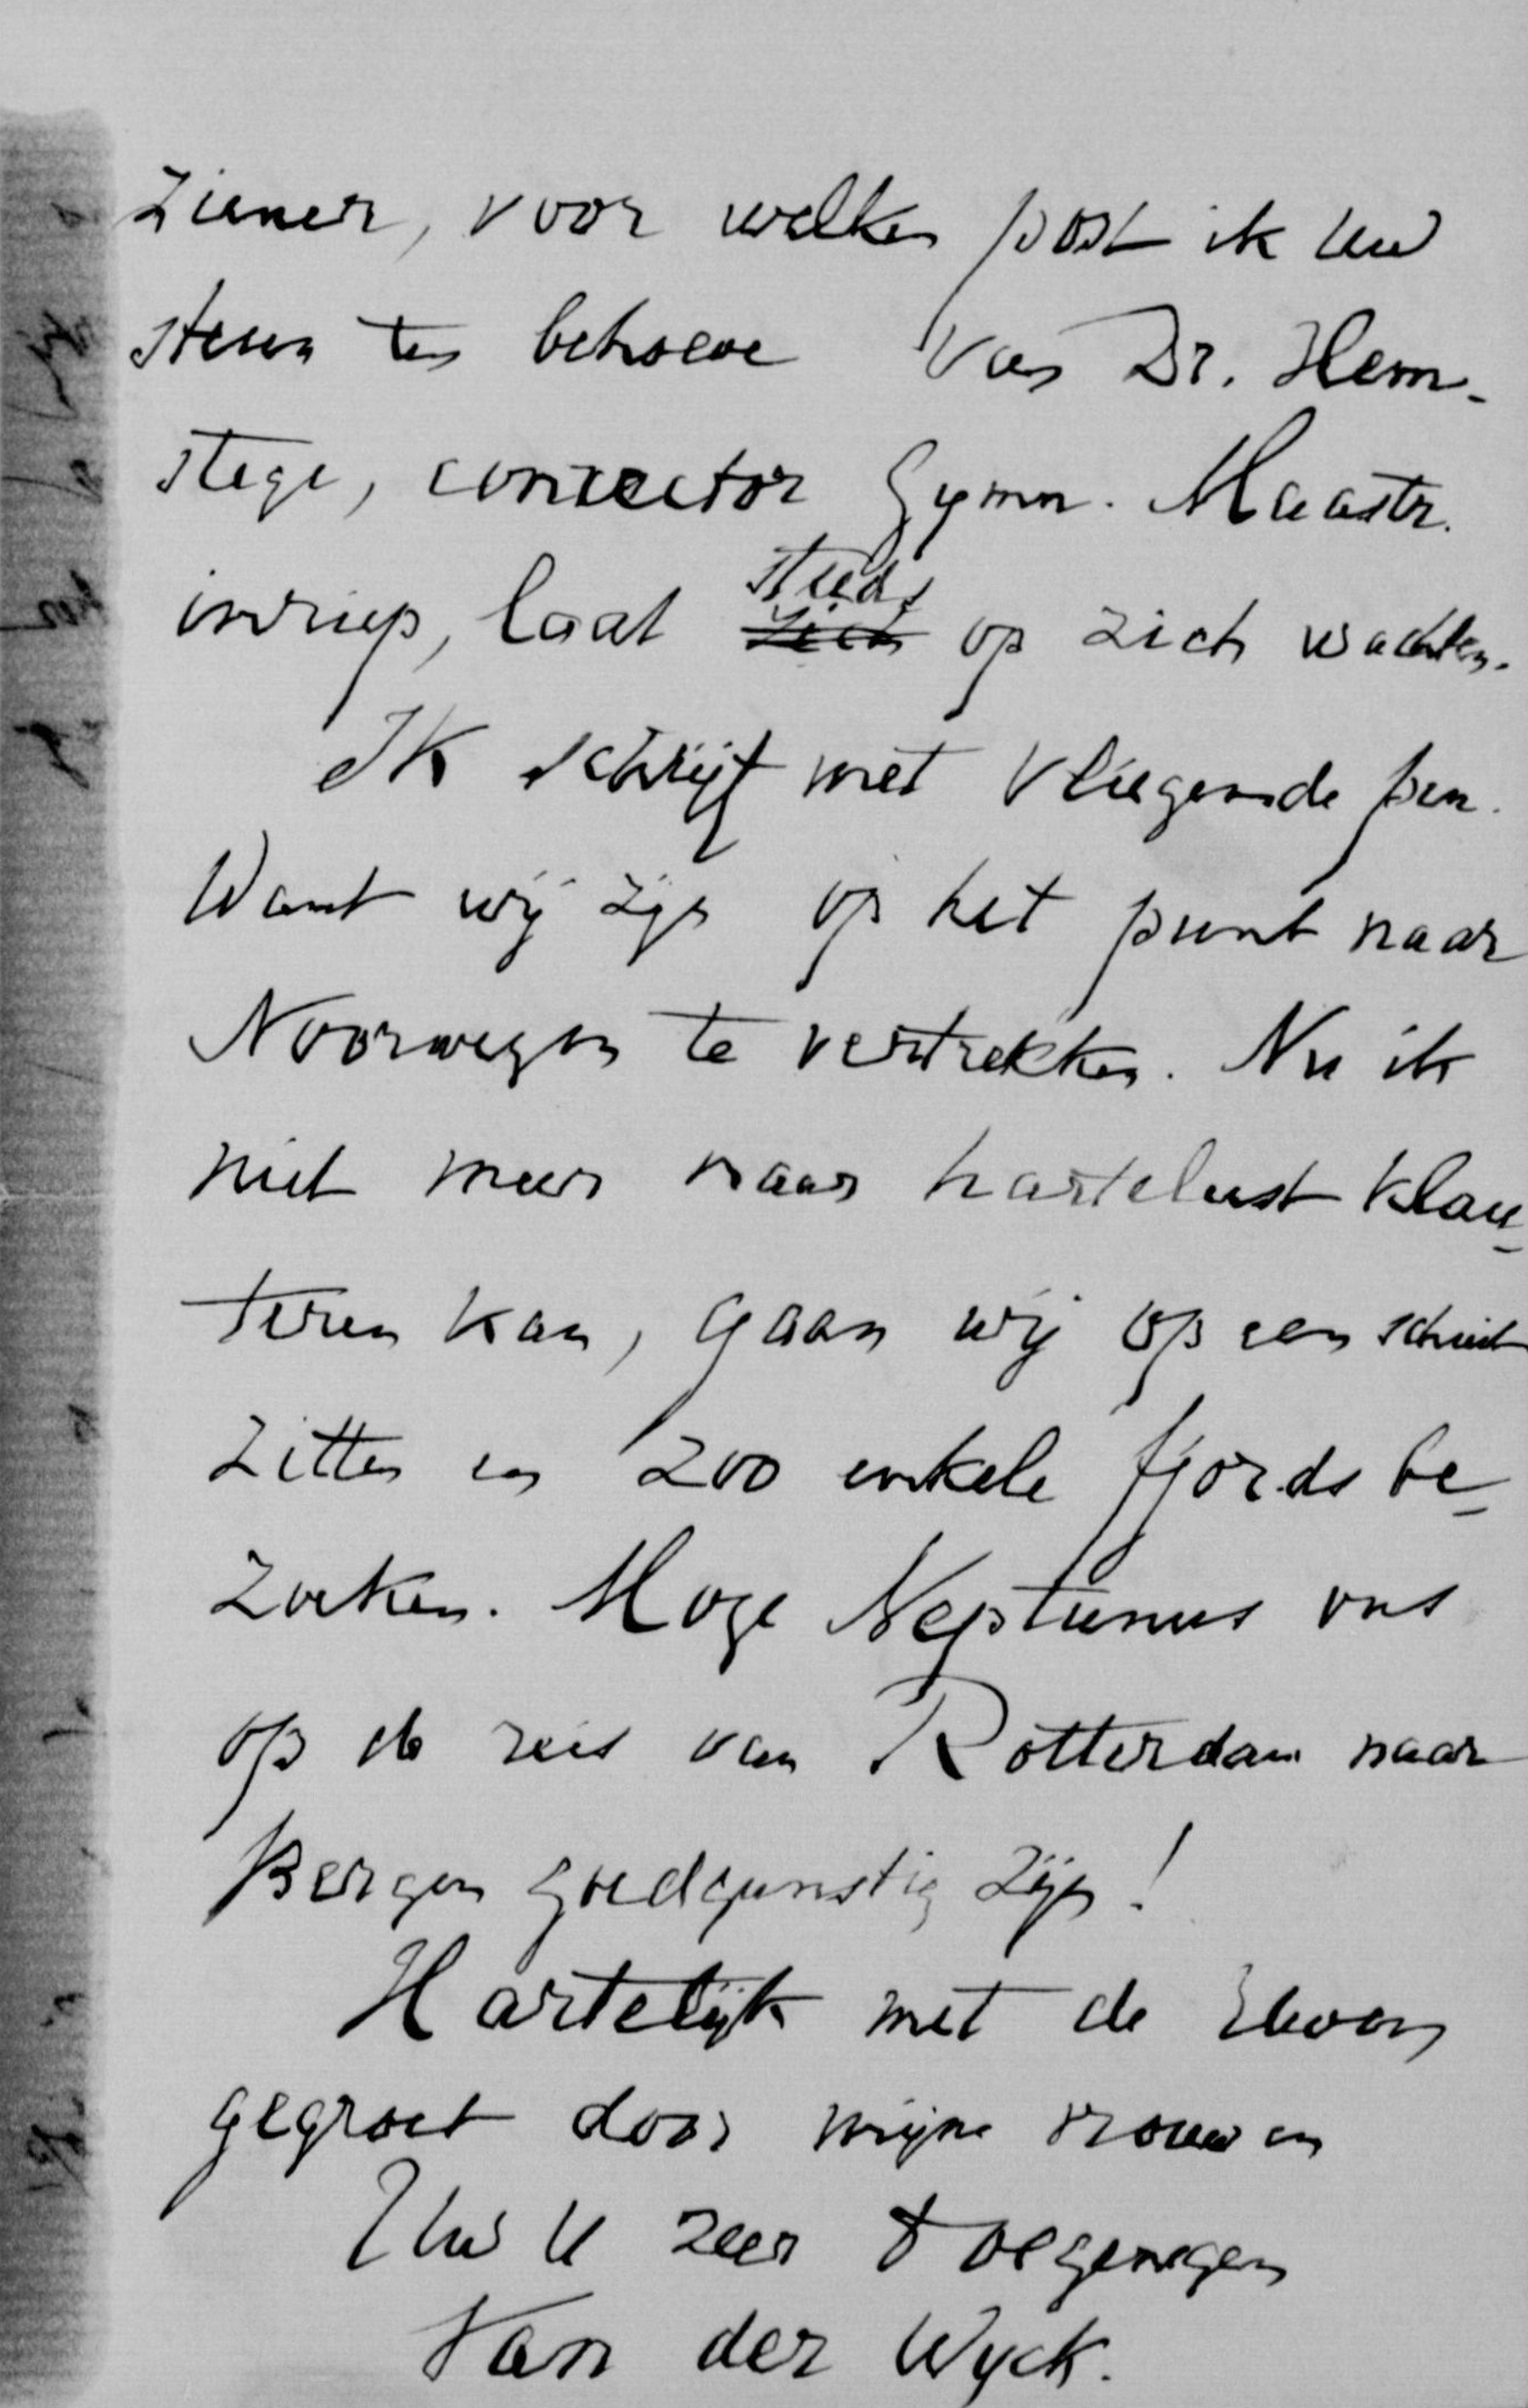 ziener, voor welken post ik uw
steun ten behoeve van Dr. Hem-
stege, conrector Gymn. Maastr.
inriep, laat steeds op zich wachten.
Ik schrijf met vliegende pen.
Want wij zijn op het punt naar
Noorwegen te vertrekken. Nu ik
niet meer naar hartelust klau-
teren kan, gaan wij op een schuit
zitten en zoo enkele fjords be-
zoeken. Moge Neptunus ons
op de reis van Rotterdam naar
Bergen goedgunstig zijn!
Hartelijk met de
gegroet door mijne vrouw en
Uw U zeer toegenegen
Van der Wyck.